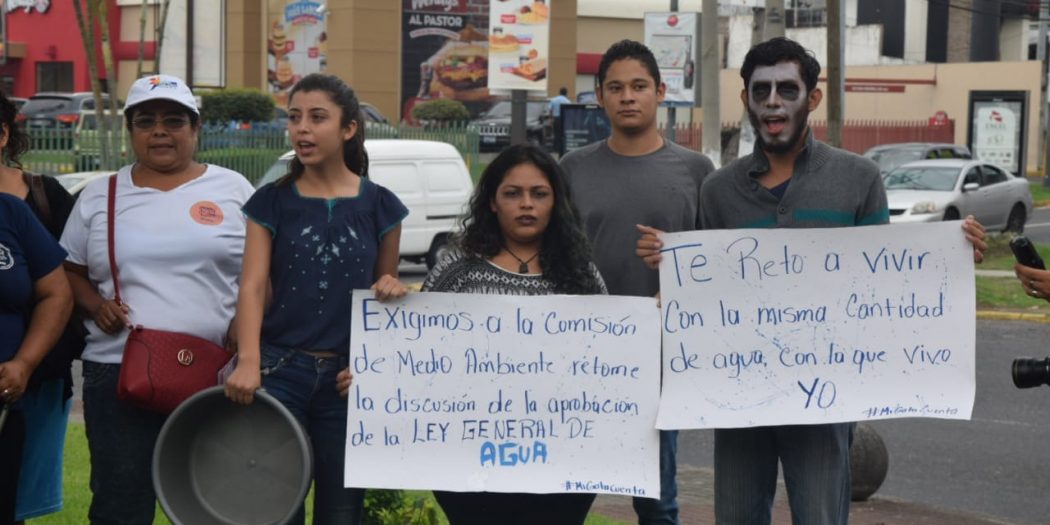 AL PASTOR
Exigimos a la Comisión
de Medio Ambiente retome
la discusión de la aprobación
de la LEY GENERAL DE
AGUA
#MiGotaCuenta
Te Reto a vivir
Con la misma Cantidad
de agua, con la que vivo
YO
#MiGotaCuenta